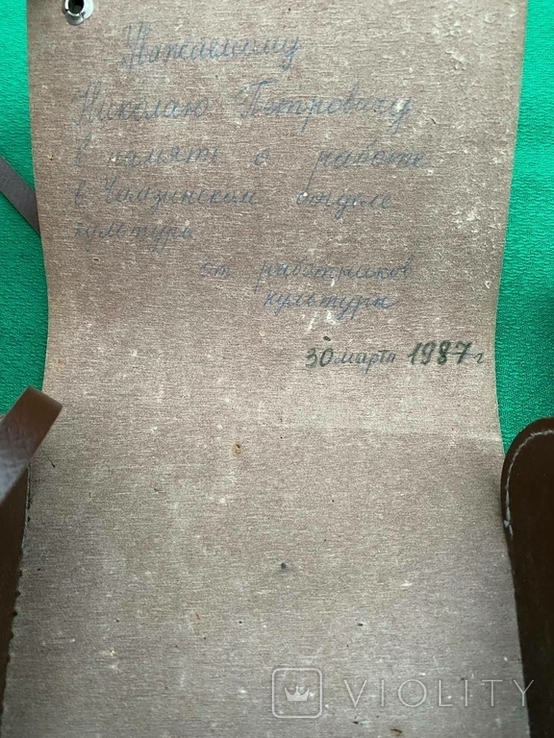 Уважаемому
Николаю Петровичу
в память о работе
в Чамзинском отделе
культуры
от работников
культуры
30 марта 1987 г
VIOLITY